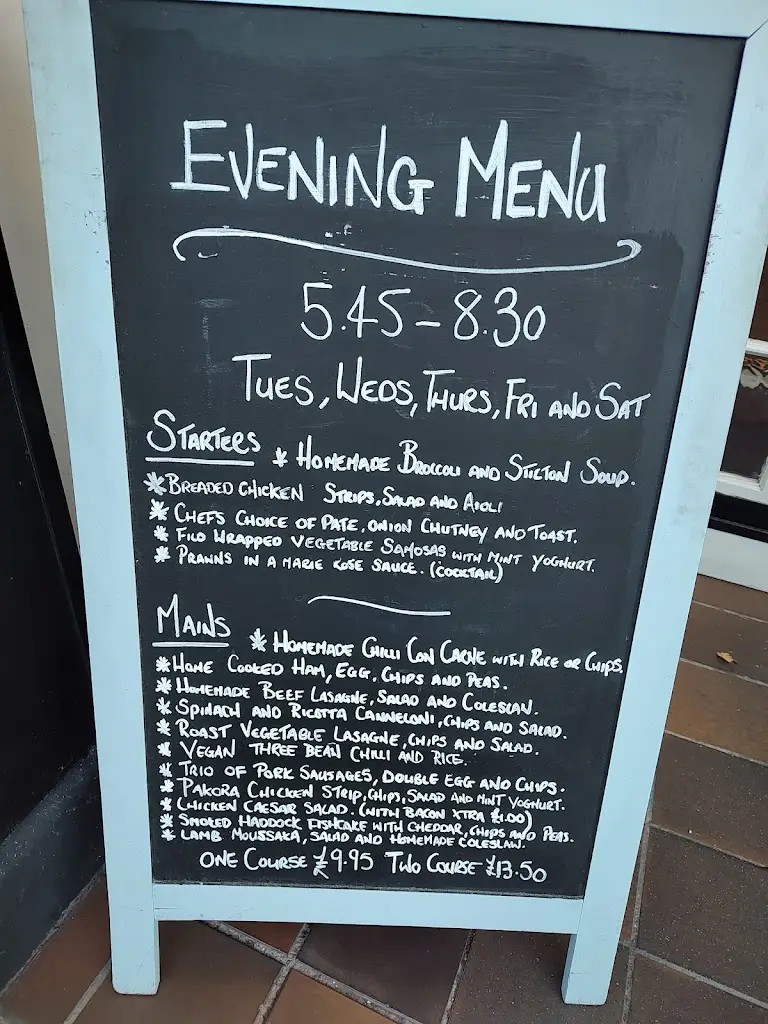 EVENING MENU
5.45 - 8.30
TUES, WEDS, THURS, FRI AND SAT
STARTERS * HOMEMADE BROCCOLI AND STILTON SOUP.
* BREADED CHICKEN STRIPS, SALAD AND AIOLI
* CHEFS CHOICE OF PATE, ONION CHUTNEY AND TOAST.
* FILO WRAPPED VEGETABLE SAMOSAS WITH MINT YOGHURT.
* PRAWNS IN A MARIE ROSE SAUCE. (COCKTAIL)
MAINS * HOMEMADE CHILLI CON CARNE WITH RICE OR CHIPS.
* HOME COOKED HAM, EGG, CHIPS AND PEAS.
* HOMEMADE BEEF LASAGNE, SALAD AND COLESLAW.
* SPINACH AND RICOTTA CANNELONI, CHIPS AND SALAD.
* ROAST VEGETABLE LASAGNE, CHIPS AND SALAD.
* VEGAN THREE BEAN CHILLI AND RICE.
* TRIO OF PORK SAUSAGES, DOUBLE EGG AND CHIPS.
* PAKORA CHICKEN STRIP, CHIPS, SALAD AND MINT YOGHURT.
* CHICKEN CAESAR SALAD. (WITH BACON XTRA £1.00)
* SMOKED HADDOCK FISHCAKE WITH CHEDDAR, CHIPS AND PEAS.
* LAMB MOUSSAKA, SALAD AND HOMEMADE COLESLAW.
ONE COURSE £9.95 TWO COURSE £13.50